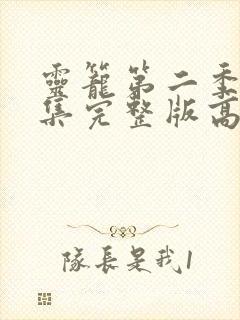 靈籠第二季
集完整版高
隊長是我1